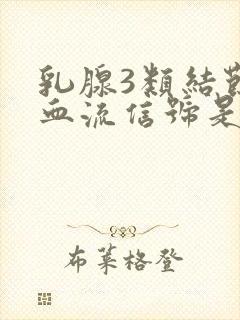 乳腺3類結
血流信號是
布莱格登